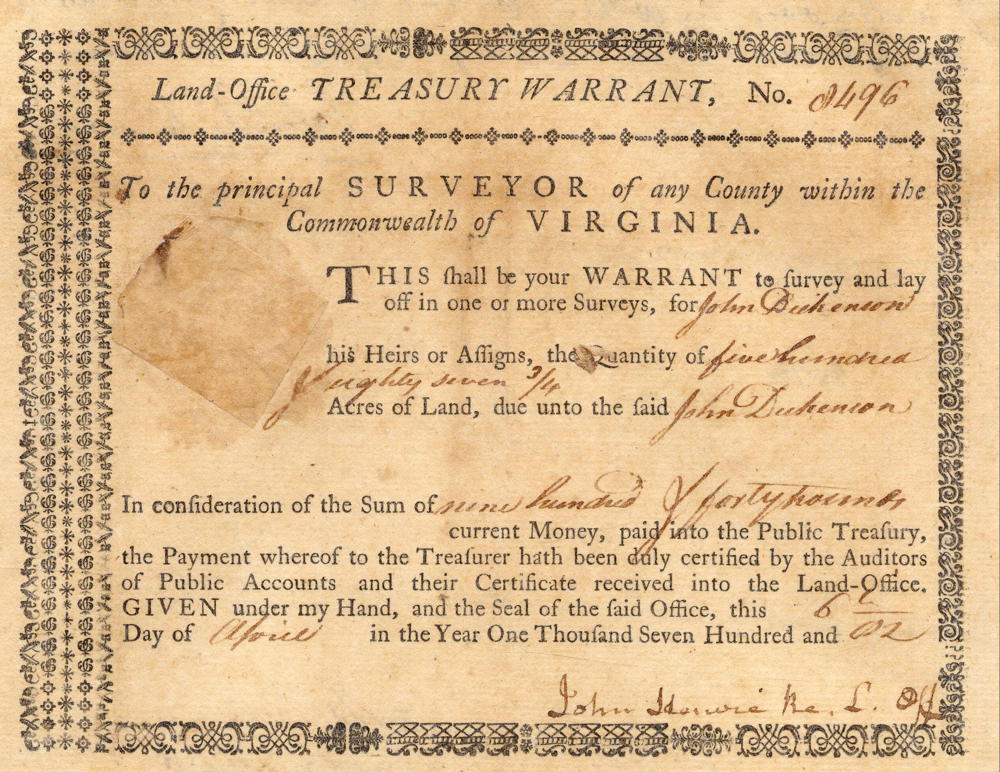 Land-Office TREASURY WARRANT, No. 8496
To the principal SURVEYOR of any County within the
Commonwealth of VIRGINIA.
THIS ſhall be your WARRANT to ſurvey and lay
off in one or more Surveys, for John Dickenson
his Heirs or Aſſigns, the Quantity of five hundred
& eighty seven 3/4
Acres of Land, due unto the ſaid John Dickenson
In conſideration of the Sum of nine hundred & forty pounds
current Money, paid into the Public Treaſury,
the Payment whereof to the Treaſurer hath been duly certified by the Auditors
of Public Accounts and their Certificate received into the Land-Office.
GIVEN under my Hand, and the Seal of the ſaid Office, this 6th
Day of April in the Year One Thouſand Seven Hundred and 82
John Harvie Re. L. Off